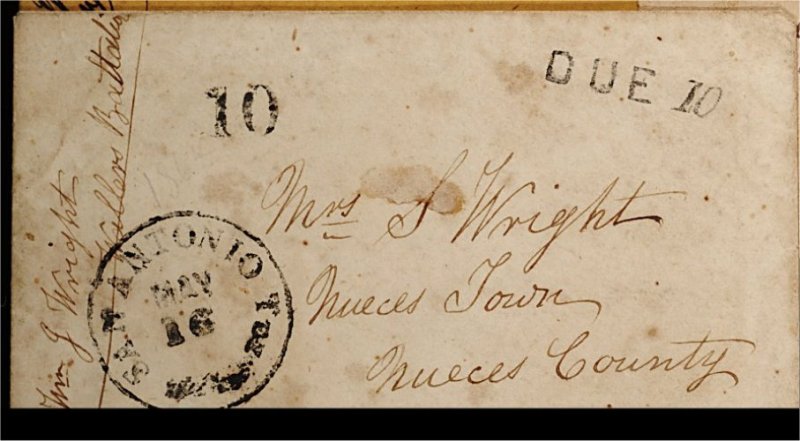 10
DUE 10
Mrs S Wright
Nueces Town
Nueces County
SAN ANTONIO Texas
MAY
16
Wm J Wright
Wallers Battalion